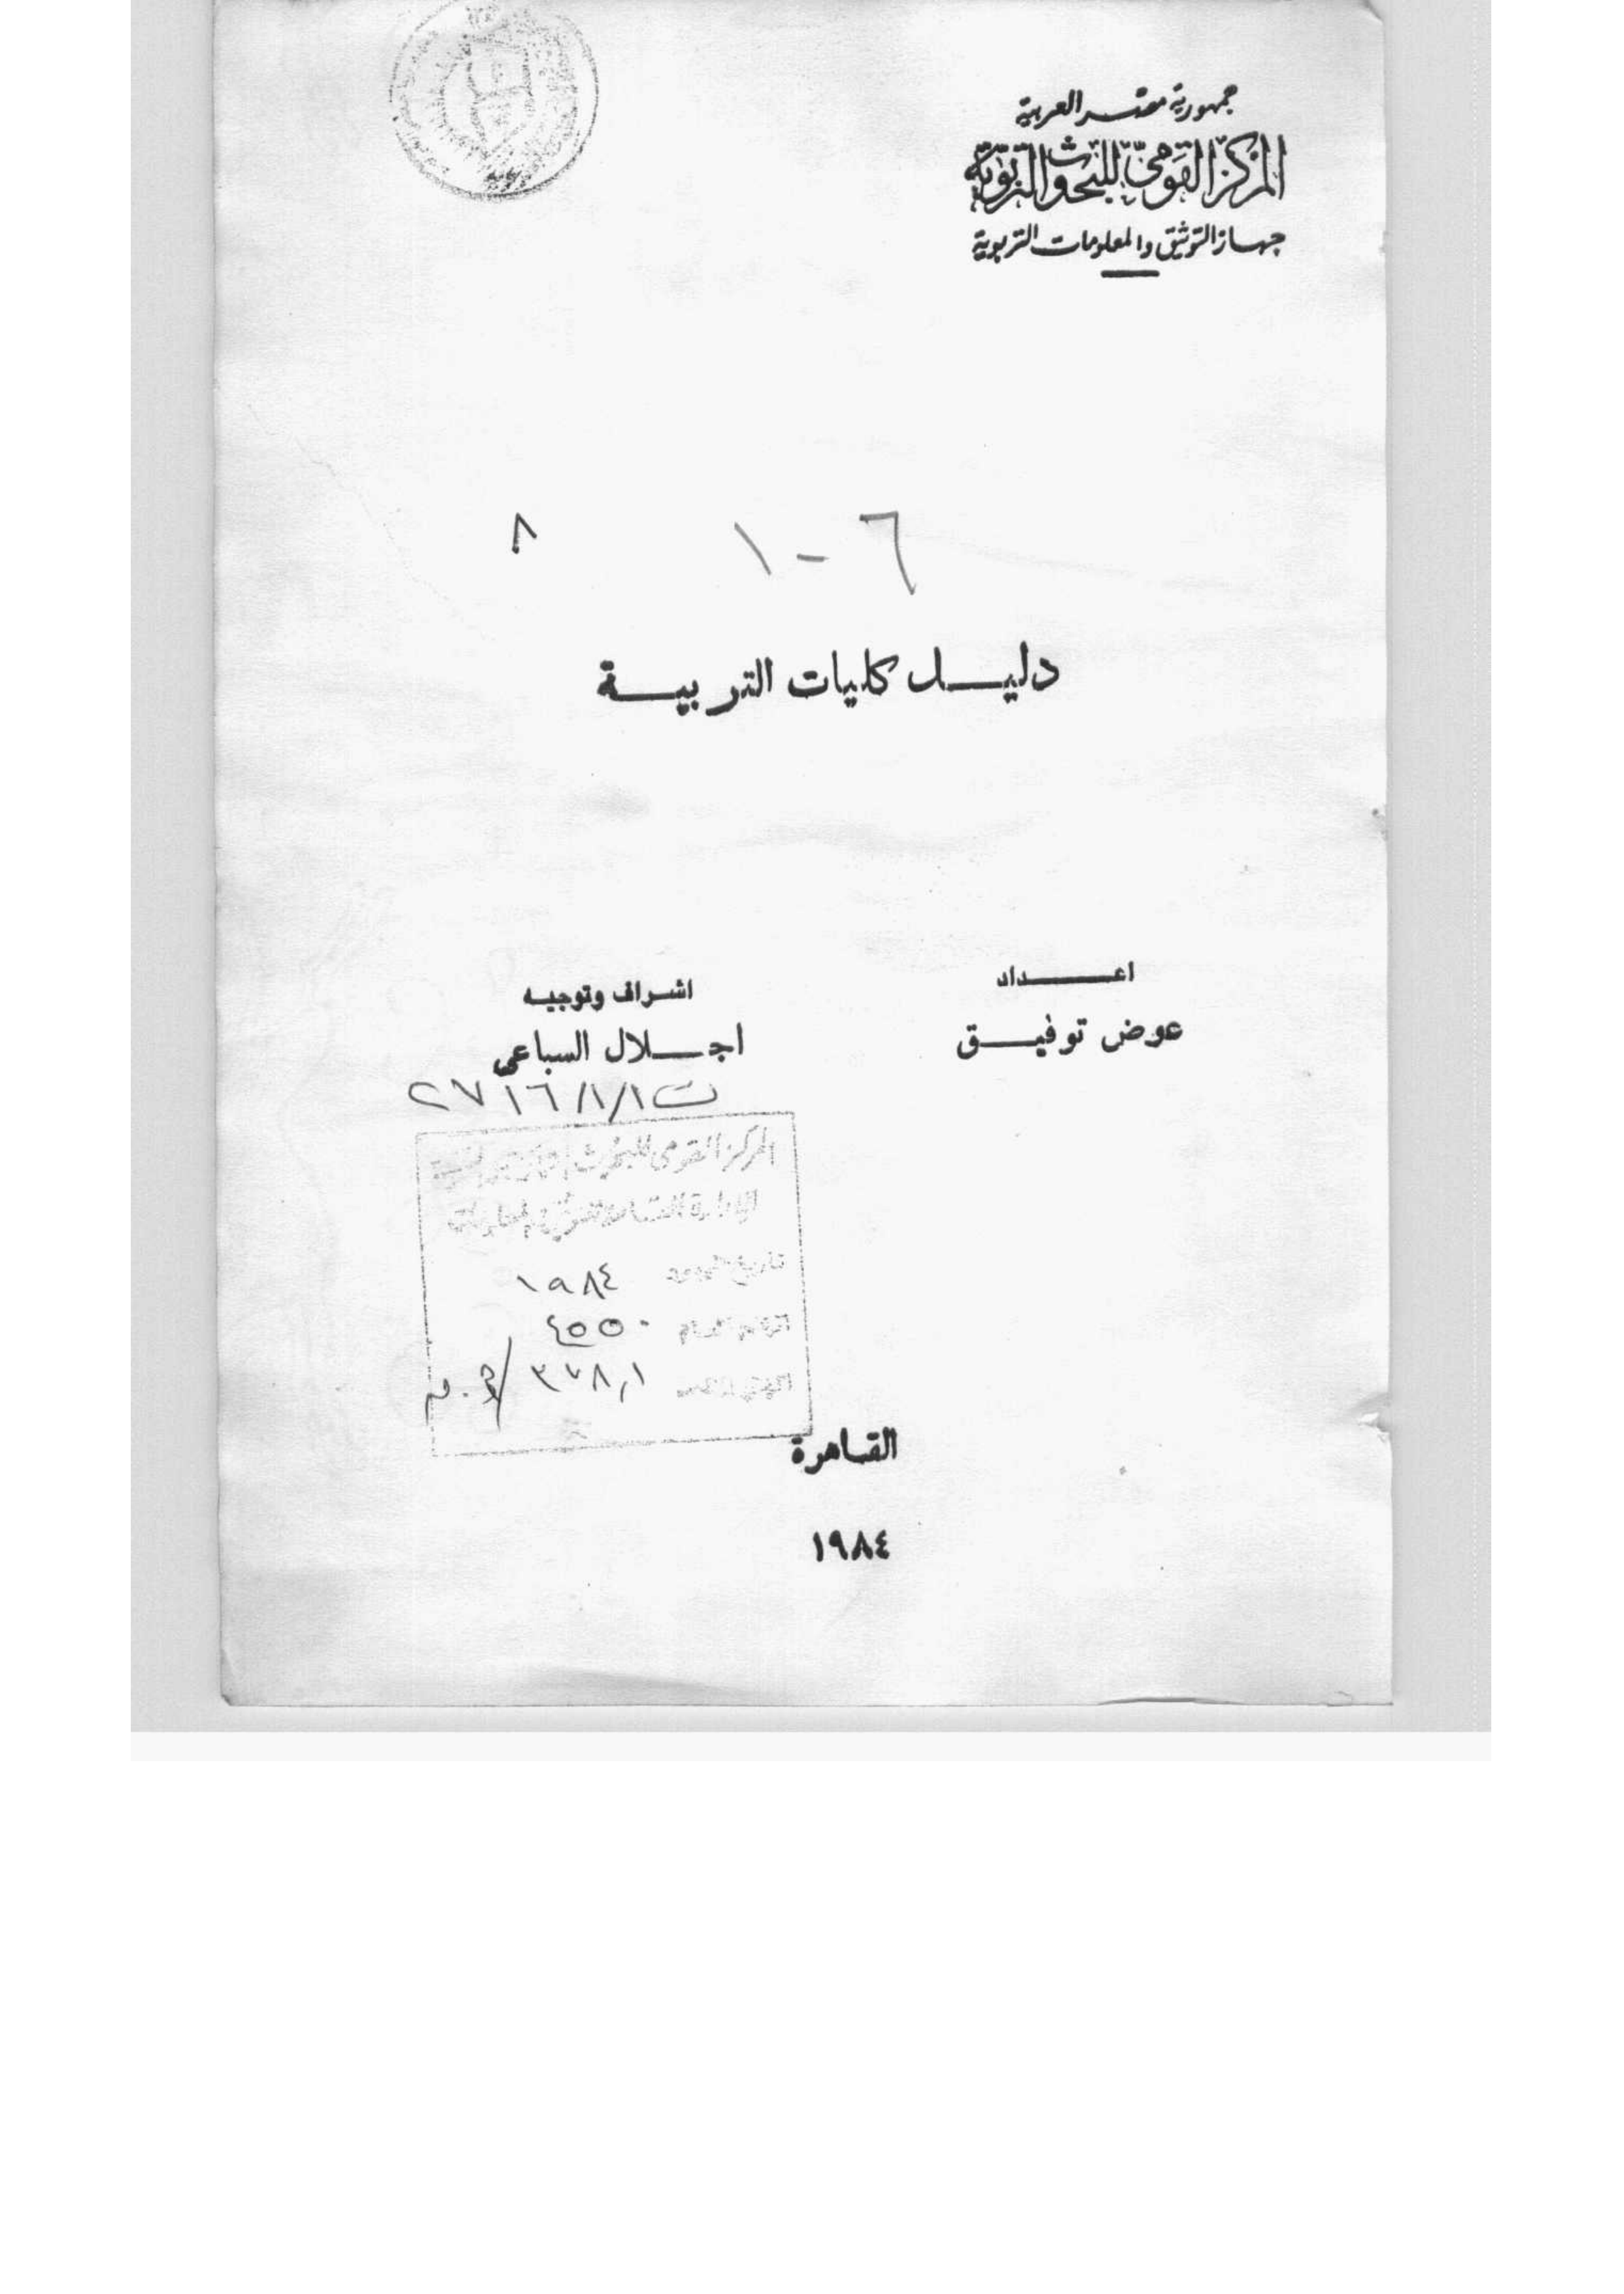 جمهورية مصر العربية
المركز القومى للبحوث التربوية
جهاز التوثيق والمعلومات التربوية
٦ - ١
٨
دليل كليات التربية
اعداد
عوض توفيق
اشراف وتوجيه
اجلال السباعى
المركز القومى للبحوث
١٩٨٤
٤٥٥٠
٣٧٨,١
القاهرة
١٩٨٤